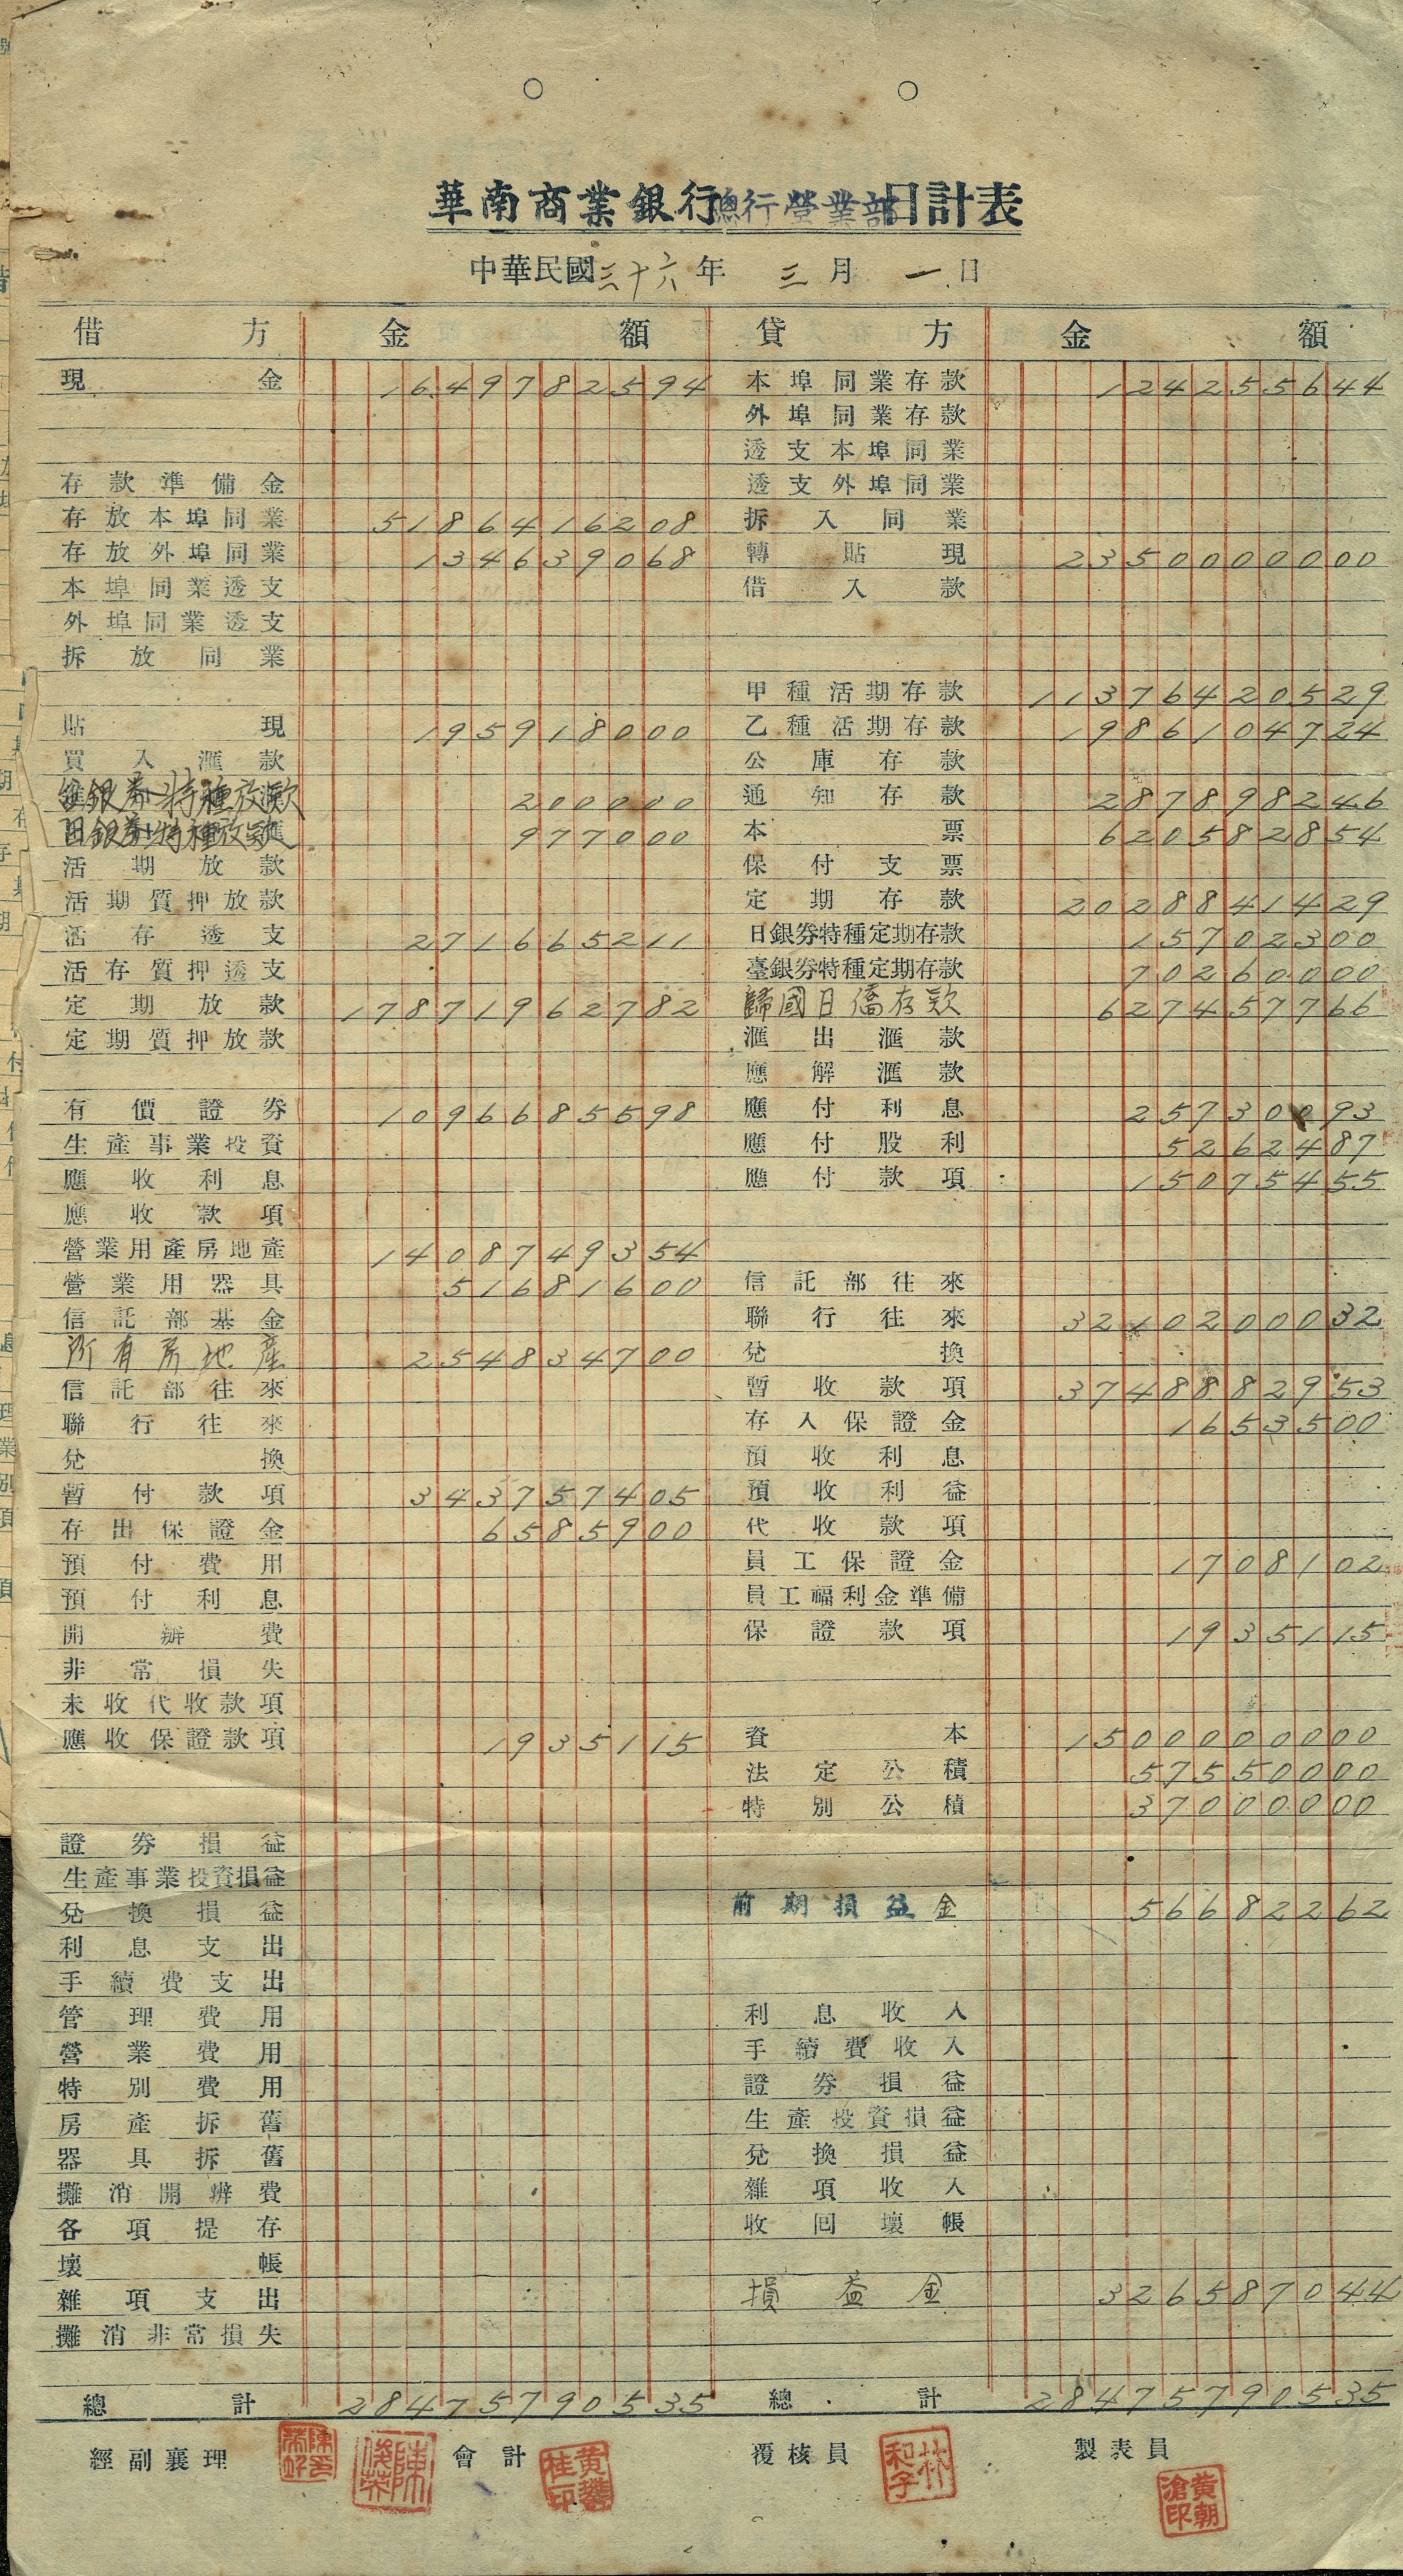 華南商業銀行總行營業部日計表
中華民國三十六年 三月 一日
借方 金額 貸方 金額
現金 16497822594 本埠同業存款 1242555644
外埠同業存款
透支本埠同業
存款準備金 透支外埠同業
存放本埠同業 5186416208 拆入同業
存放外埠同業 134639068 轉貼現 23500000000
本埠同業透支 借入款
外埠同業透支
拆放同業
甲種活期存款 113764420529
貼現 195918000 乙種活期存款 19861104724
買入滙款 公庫存款
銀券特種放款 200000 通知存款 2878982446
日銀券特種放款 977000 本票 620582854
活期放款 保付支票
活期質押放款 定期存款 20288841429
活存透支 2716665211 日銀券特種定期存款 15702300
活存質押透支 臺銀券特種定期存款 70260000
定期放款 17871962782 歸國日僑存款 627457766
定期質押放款 滙出滙款
應解滙款
有價證券 1096685598 應付利息 25730093
生產事業投資 應付股利 5262487
應收利息 應付款項 15075455
應收款項
營業用產房地產 1408749354
營業用器具 51681600 信託部往來
信託部基金 聯行往來 3210200032
所有房地產 254834700 兌換
信託部往來 暫收款項 3748882953
聯行往來 存入保證金 1653500
兌換 預收利息
暫付款項 343757405 預收利益
存出保證金 6585900 代收款項
預付費用 員工保證金 1708102
預付利息 員工福利金準備
開辦費 保證款項 1935115
非常損失
未收代收款項
應收保證款項 1935115 資本 1500000000
法定公積 57550000
特別公積 37000000
證券損益
生產事業投資損益
兌換損益 前期損益金 56682262
利息支出
手續費支出
管理費用 利息收入
營業費用 手續費收入
特別費用 證券損益
房產拆舊 生產投資損益
器具拆舊 兌換損益
攤消開辦費 雜項收入
各項提存 收回壞帳
壞帳
雜項支出 損益金 326587044
攤消非常損失
總計 28475790535 總計 28475790535
經副襄理 會計 覆核員 製表員
林和子
黃朝滄印